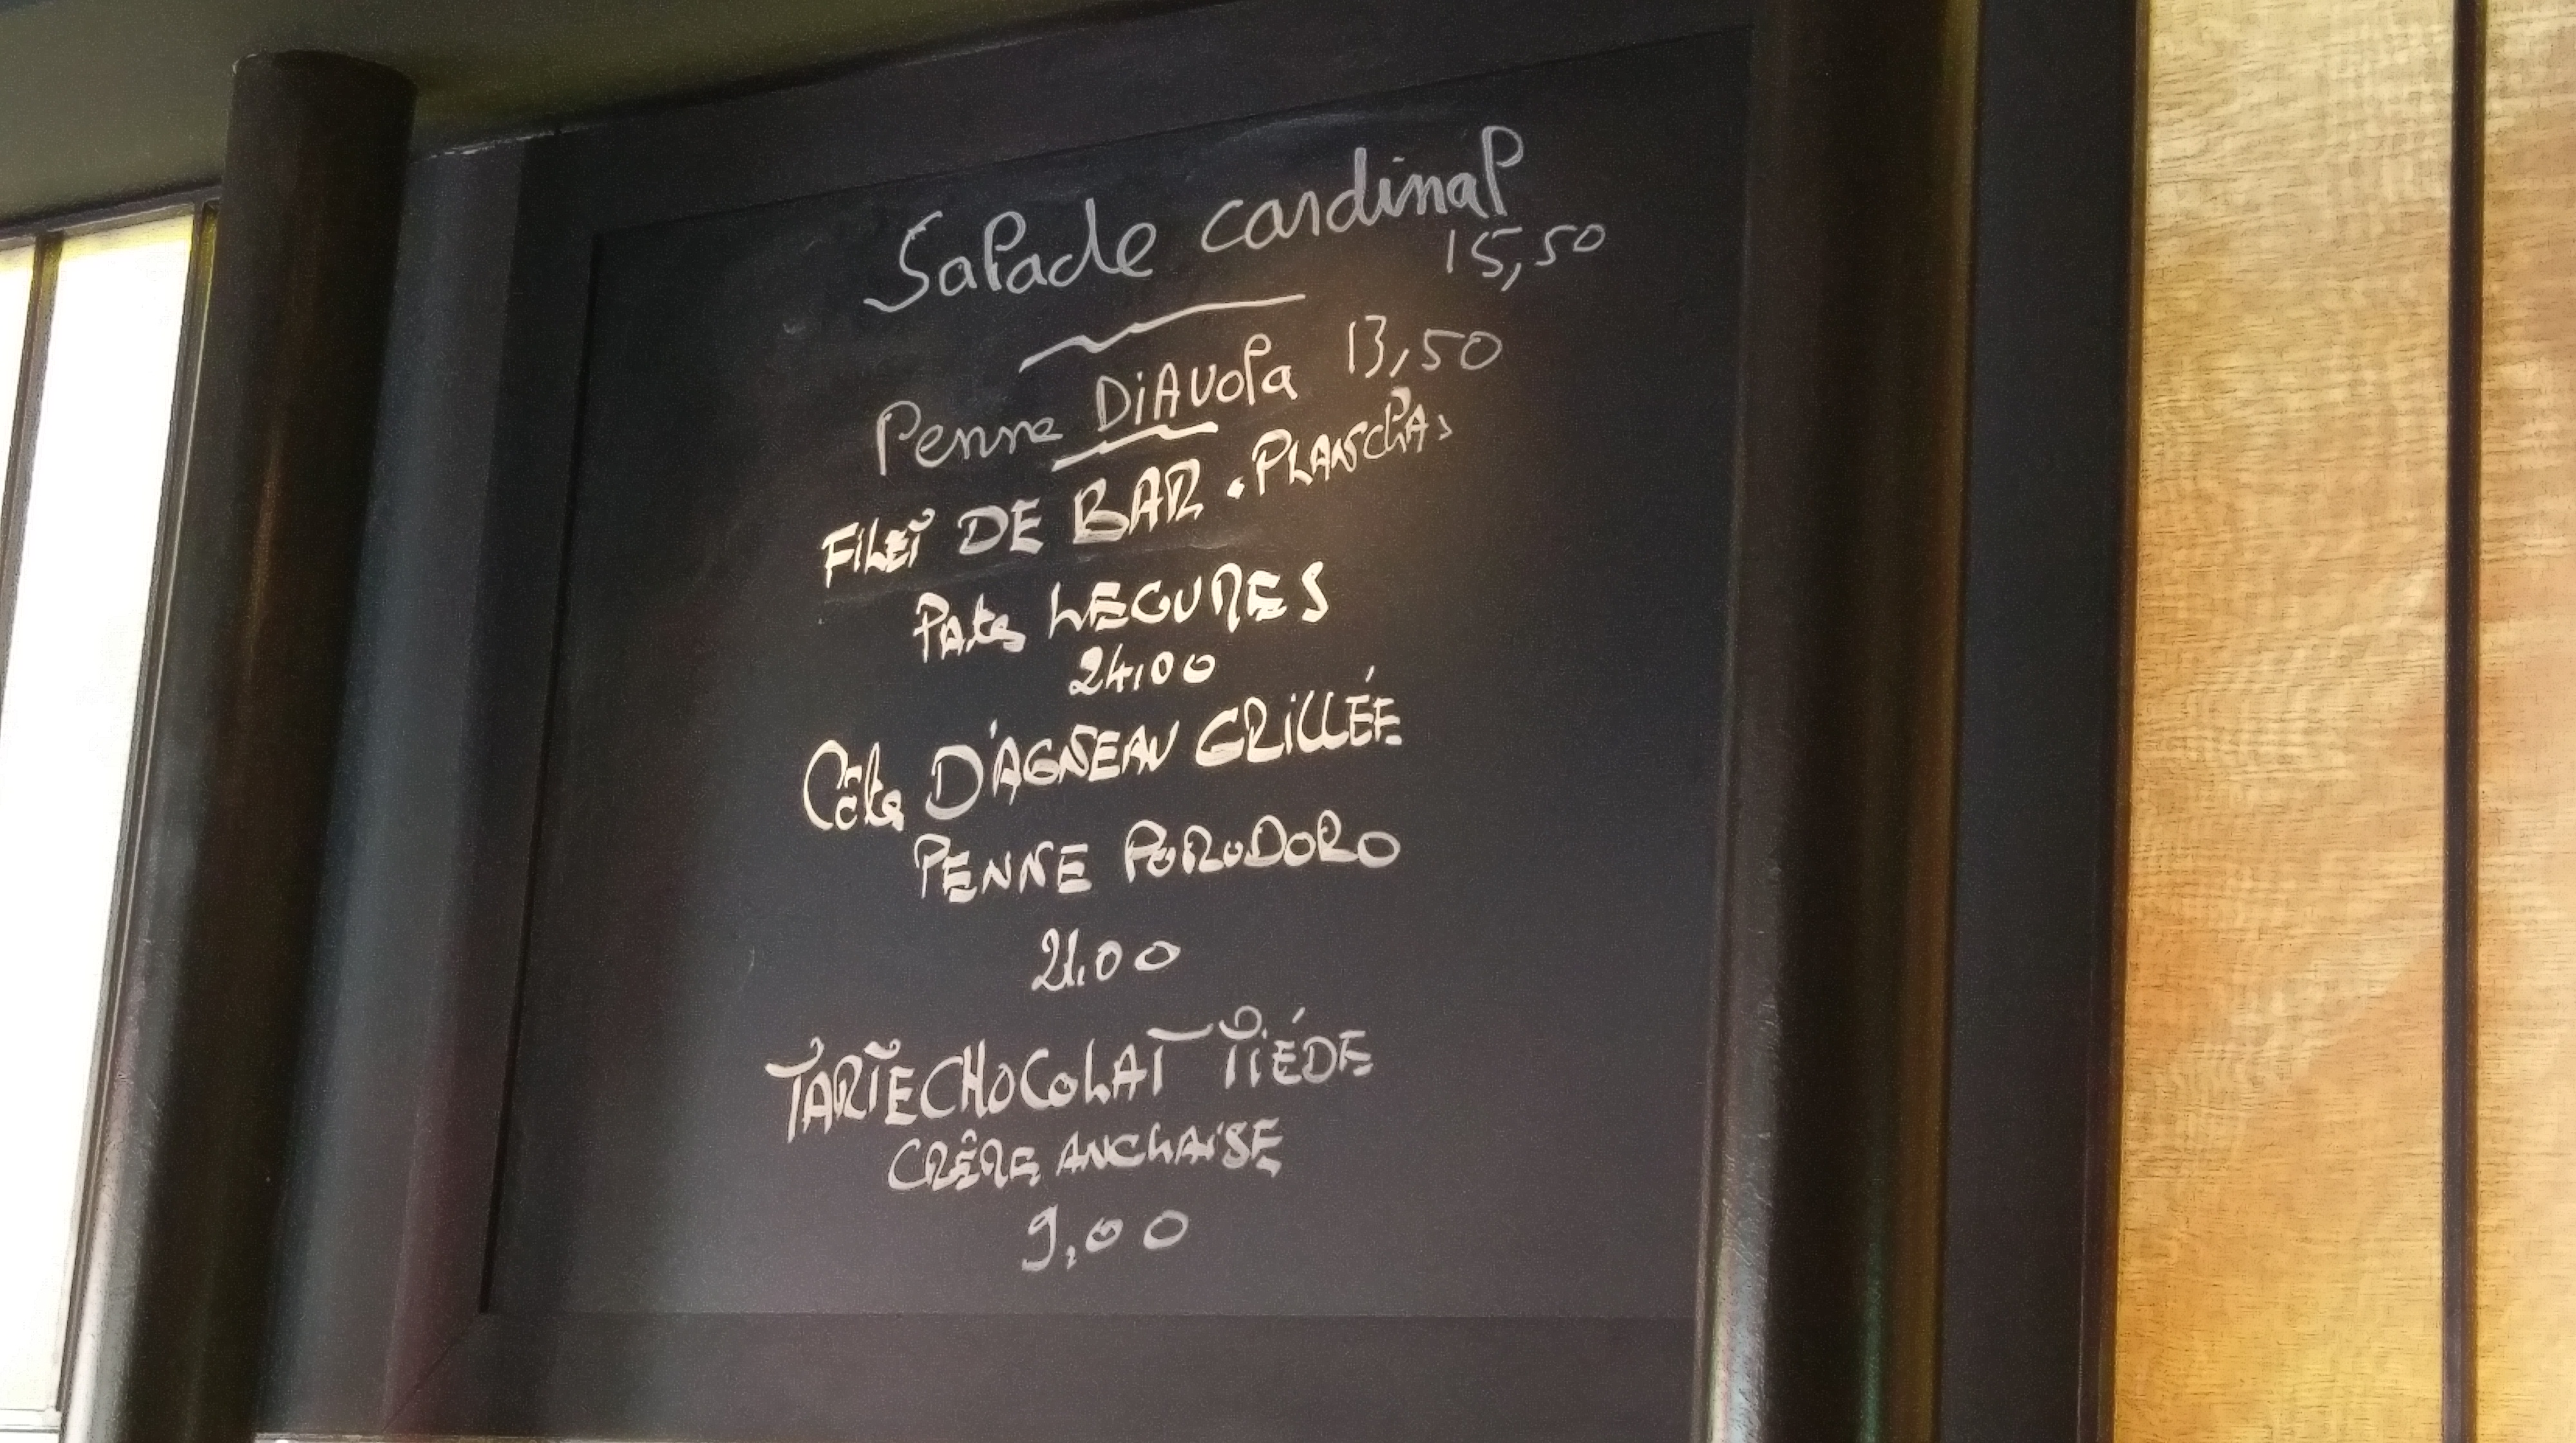 Salade cardinal
15,50
Penne DiAvola 13,50
FiLET DE BAR "PLANCHA"
Pates LEGUMES
24,00
Côte D'AGNEAU GRiLLÉE
PENNE POMODORO
21,00
TARTE CHOCOLAT TiÉDE
CRÊME ANGLAiSE
9,00